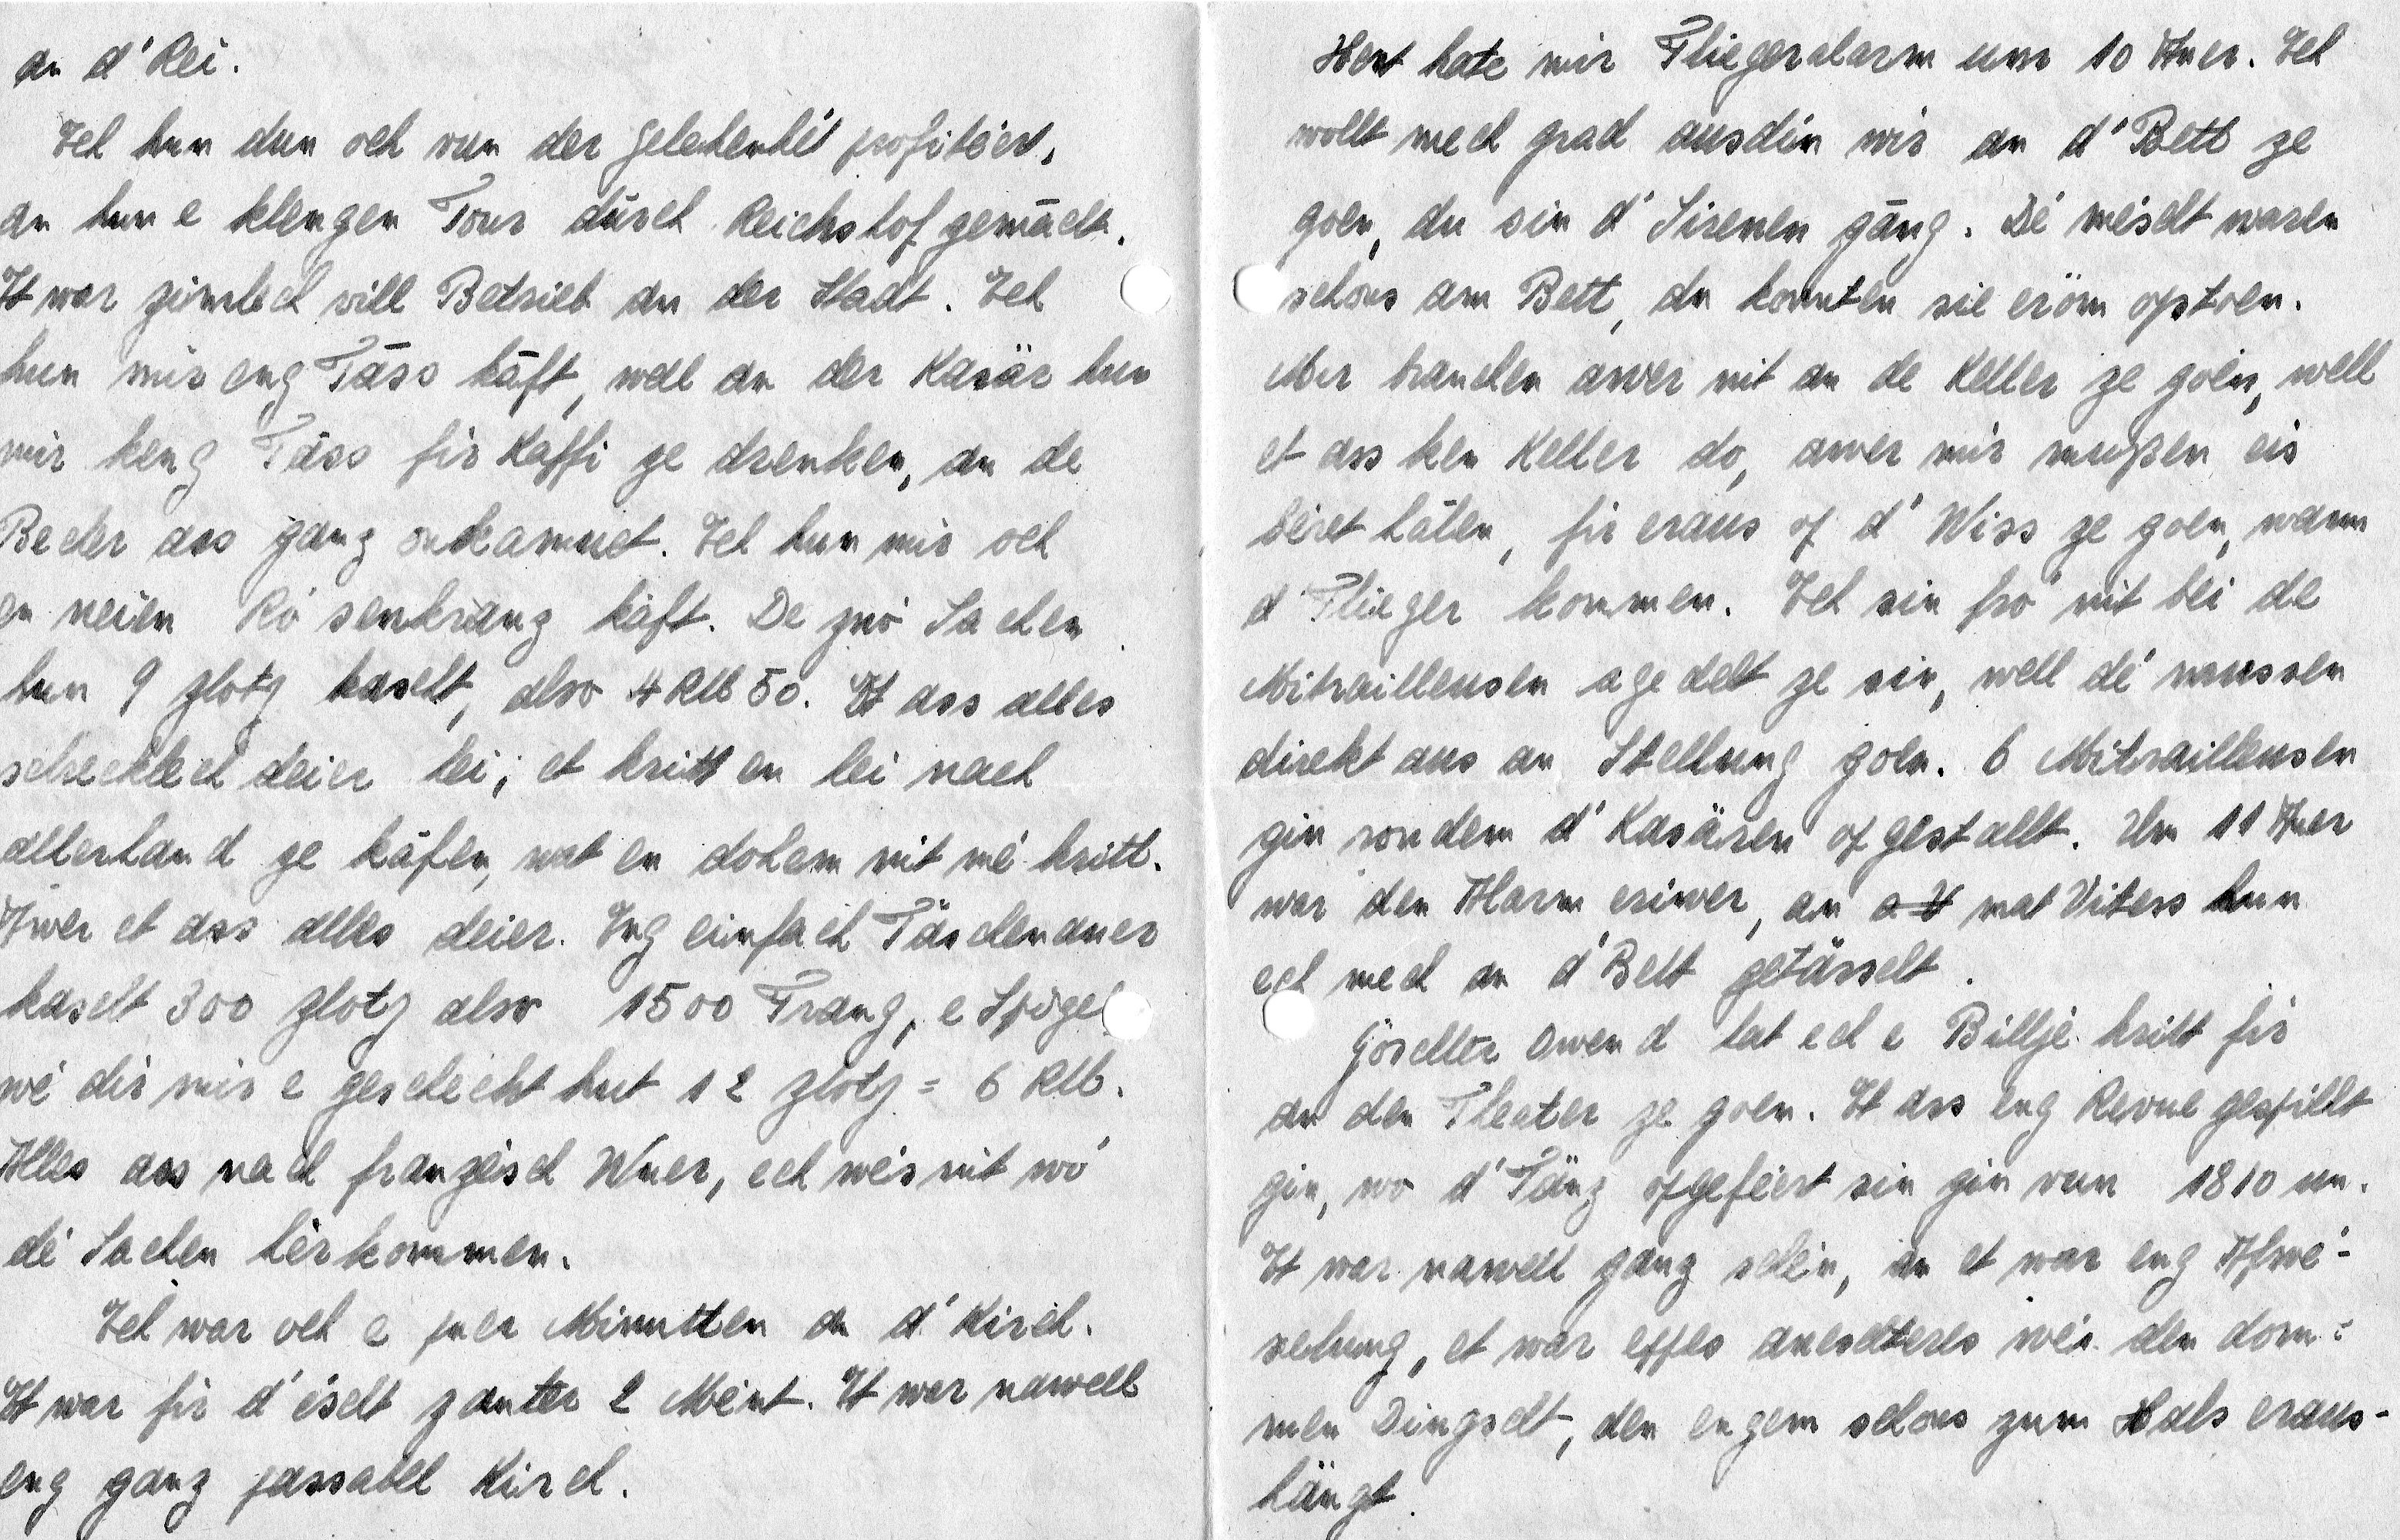 an d' Rei.
Ech hun dun och vun der Gelehenhét profitéert,
an hun e klengen Tour dürch Reichshof gemācht.
Et war zimlech vill Betrieb an der Stadt. Ech
hun mir eng Tāss kāft, well an der Kasär hun
mir keng Tāss fir Kaffi ze drenken, an de
Becher ass ganz onbekannt. Ech hun mir och
en neien Rósenkranz kāft. De zwó Sachen
hun 9 zloty kascht, also 4 RM 50. Et ass alles
schrecklech deier hei; et kritt en hei nach
allerhand ze kāfen, wat en dohem nit mé kritt.
Awer et ass alles deier. Eng einfach Täschenauer
kascht 300 zloty also 1500 Frang, e Spigel
wé dir mir e geschéckt hut 12 zloty = 6 RM.
Alles ass nach franzéisch Wuer, ech wés nit wó
dé Sachen hérkommen.
Ech war och e puer Minutten an d' Kirch.
Et war fir d' éischt zanter 2 Mént. Et war nawell
eng ganz passabel Kirch.
Hent hate mir Fliegeralarm um 10 Auer. Ech
wollt mech grad ausdin wir an d' Bett ze
goen, du sin d' Sirenen gāng. Dé méscht waren
schons am Bett, du konnten sie eröm opstoen.
Mir brauchen awer nit an de Keller ze goen, well
et ass ken Keller do, awer mir mußen eis
béret hālen, fir eraus of d' Wiss ze goen, wann
d' Flieger kommen. Ech sin fró nit bei de
Mitrailleusen agedelt ze sin, well dé mussen
direkt aus an Stellung goen. 6 Mitrailleusen
gin ronderm d' Kasären ofgestallt. Um 11 Auer
war den Alarm eriwer, an mat Vitess hun
ech mech an d' Bett getässelt.
Göschter Owend hat ech e Billjé kritt fir
an den Theater ze goen. Et ass eng Revue gespillt
gin, wo d' Tänz ofgeféert sin gin vun 1810 un.
Et war nawell ganz schéin, an et war eng Ofwé-
selung, et war eppes aneschteres wéi den dom-
men Dingscht, den engem schons zum Hals eraus-
hängt.